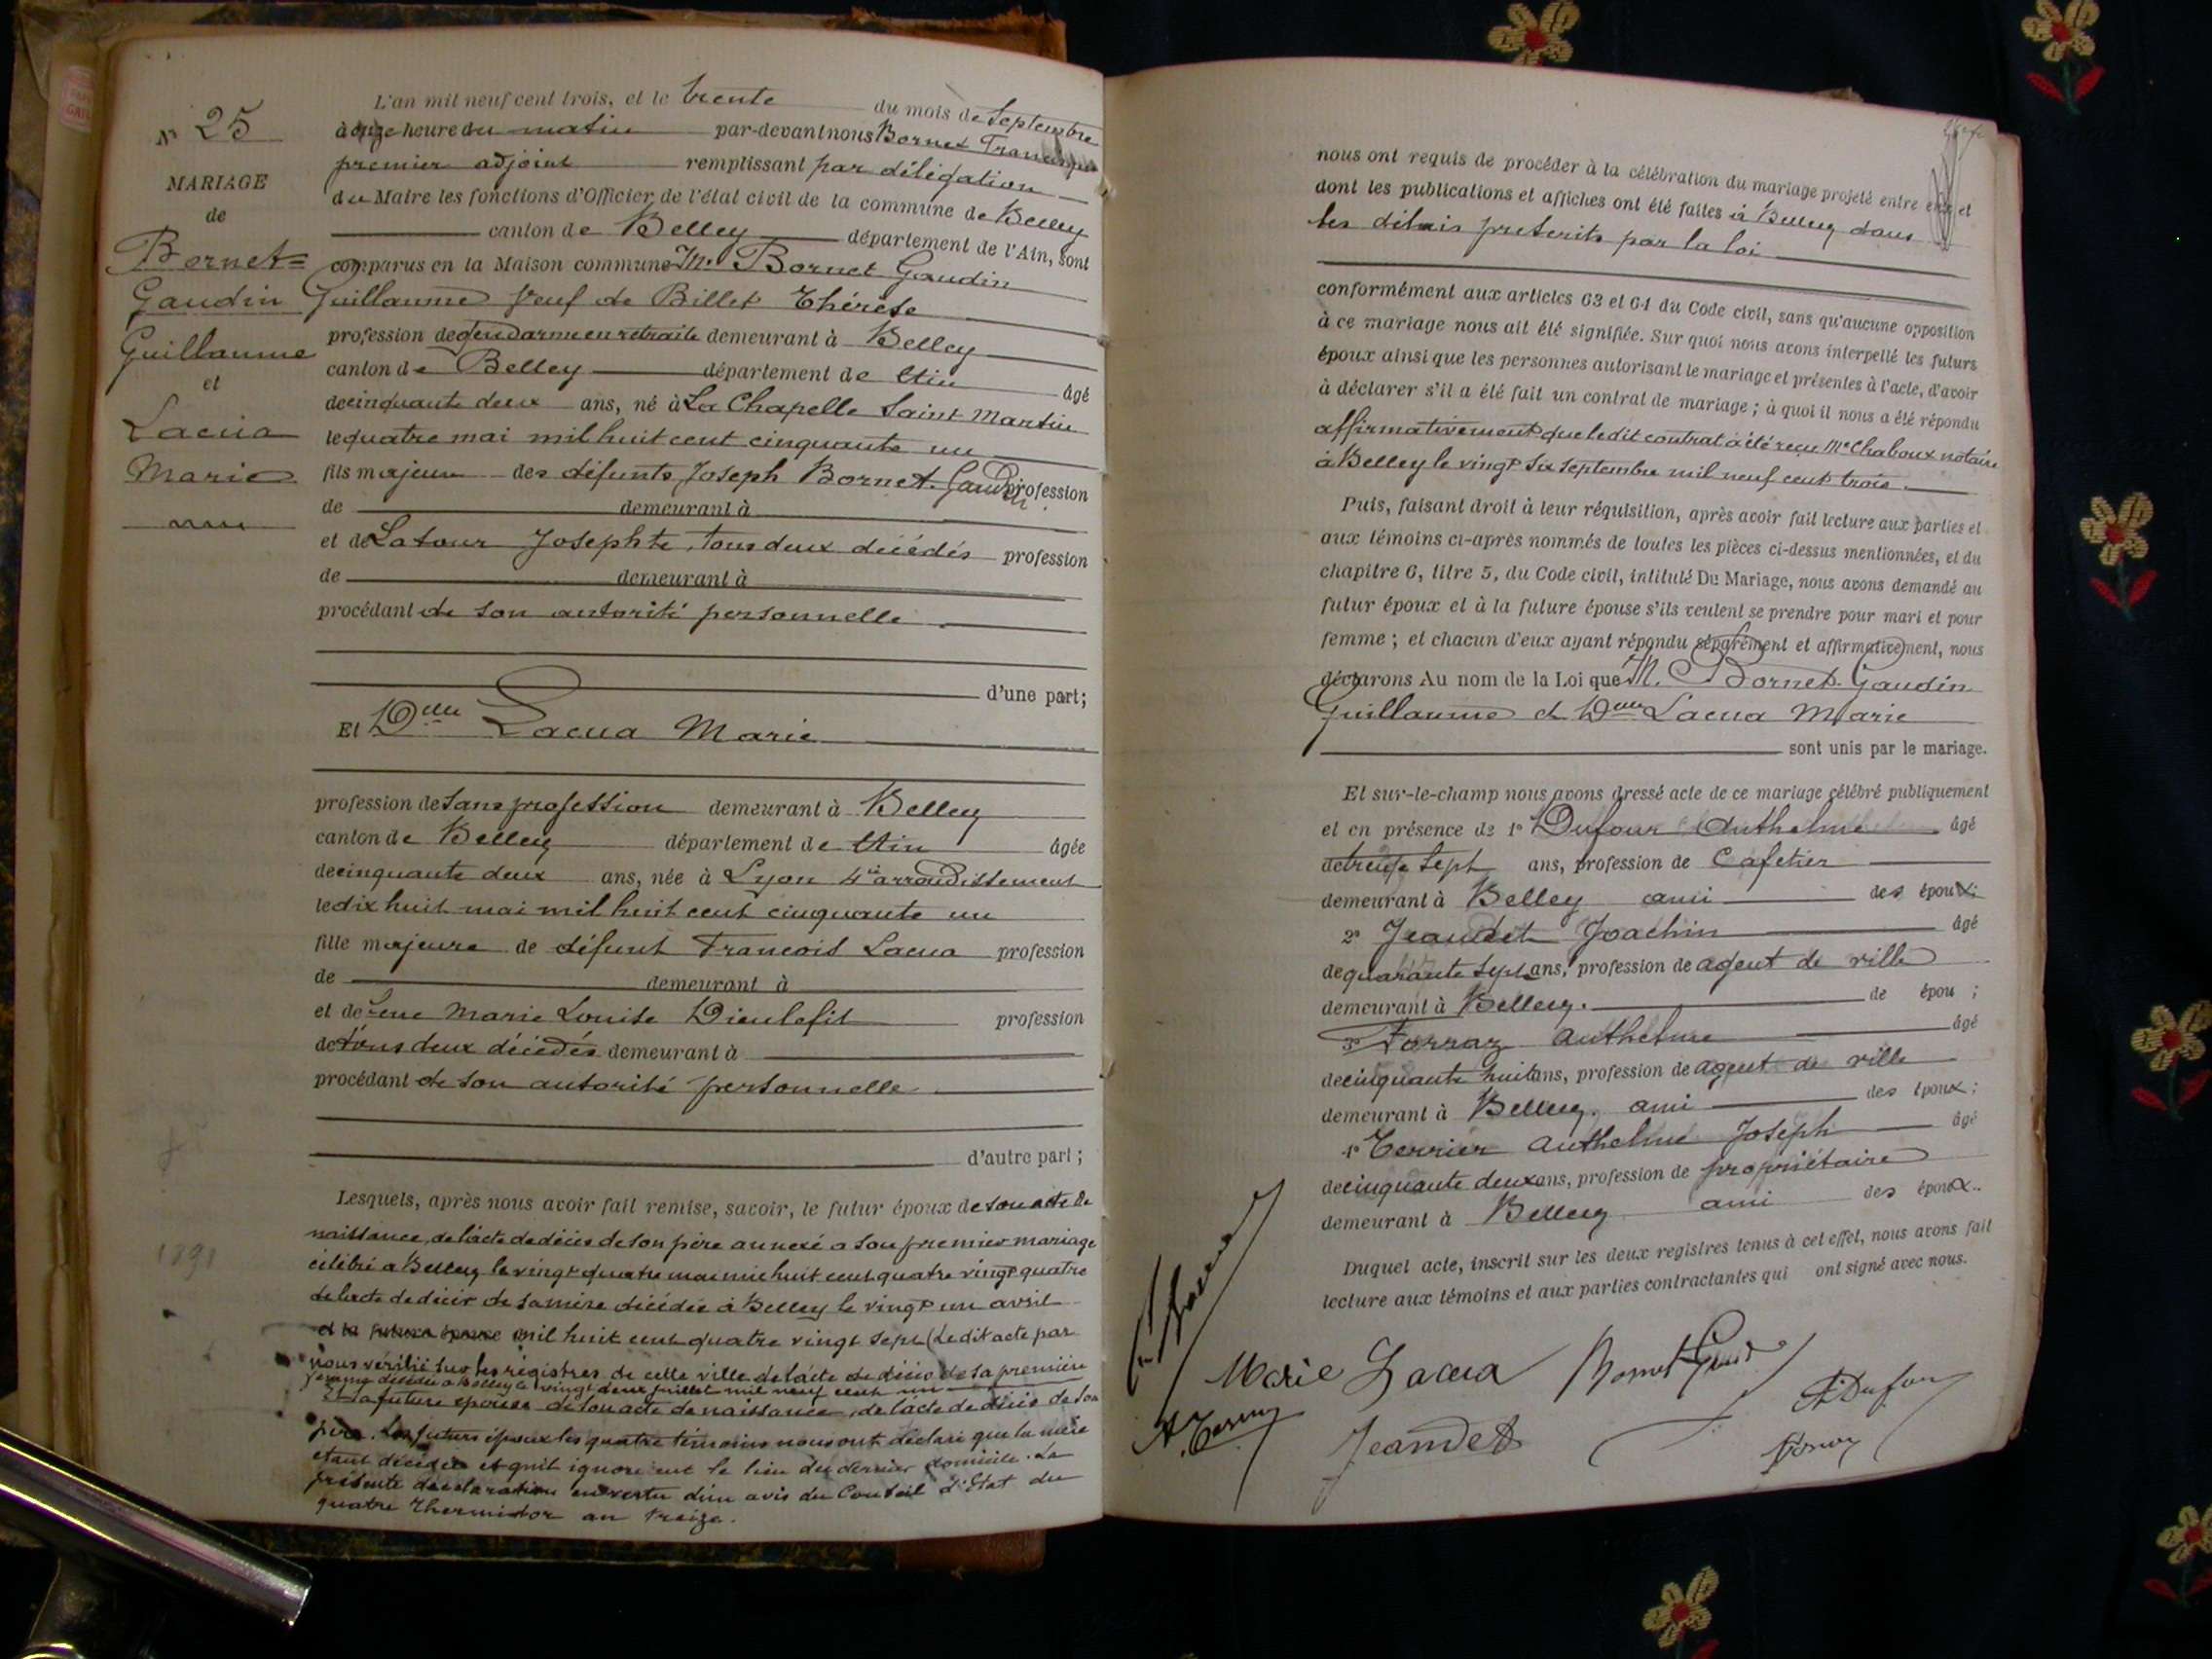 N° 25
MARIAGE
de
Bornet=
Gaudin
Guillaume
et
Lacua
Marie
L'an mil neuf cent trois, et le trente du mois de Septembre
à onze heure du matin par-devant nous Bornet François
premier adjoint remplissant par délégation
du Maire les fonctions d'Officier de l'état civil de la commune de Belley
canton de Belley département de l'Ain, sont
comparus en la Maison commune Mr Bornet Gaudin
Guillaume Veuf de Billet Thérèse
profession de gendarme en retraite demeurant à Belley
canton de Belley département de l'Ain âgé
de cinquante deux ans, né à La Chapelle Saint Martin
le quatre mai mil huit cent cinquante un
fils majeur des défunts Joseph Bornet-Gaudin profession
de demeurant à
et de Latour Josephte, tous deux décédés profession
de demeurant à
procédant de son autorité personnelle
d'une part;
Et Delle Lacua Marie
profession de Sans profession demeurant à Belley
canton de Belley département de l'Ain âgée
de cinquante deux ans, née à Lyon 4e arrondissement
le dix huit mai mil huit cent cinquante un
fille majeure de défunt Francois Lacua profession
de demeurant à
et de feue Marie Louise Dieulefit profession
de tous deux décédés demeurant à
procédant de son autorité personnelle
d'autre part;
Lesquels, après nous avoir fait remise, savoir, le futur époux de son acte de
naissance, de l'acte de décès de son père annexé a son premier mariage
célébré a Belley le vingt quatre mai mil huit cent quatre vingt quatre
de l'acte de décès de sa mère décédée à Belley le vingt un avril
et la future épouse mil huit cent quatre vingt sept (Ledit acte par
nous vérifié sur les régistres de cette ville de l'acte de décès de sa première
femme décédée a Belley le vingt deux juillet mil neuf cent un
Et la future épouse de son acte de naissance, de l'acte de décès de son
père. Les futurs époux les quatre témoins nous ont déclaré que la mère
étant décédée et qu'il ignore le lieu du dernier domicile. La
présente déclaration en vertu d'un avis du Conseil d'Etat du
quatre thermidor an treize.
nous ont requis de procéder à la célébration du mariage projeté entre eux et
dont les publications et affiches ont été faites à Belley dans
les délais prescrits par la loi
conformément aux articles 63 et 64 du Code civil, sans qu'aucune opposition
à ce mariage nous ait été signifiée. Sur quoi nous avons interpellé les futurs
époux ainsi que les personnes autorisant le mariage et présentes à l'acte, d'avoir
à déclarer s'il a été fait un contrat de mariage; à quoi il nous a été répondu
affirmativement que ledit contrat a été reçu Me Chaboux notaire
à Belley le vingt six septembre mil neuf cent trois.
Puis, faisant droit à leur réquisition, après avoir fait lecture aux parties et
aux témoins ci-après nommés de toutes les pièces ci-dessus mentionnées, et du
chapitre 6, titre 5, du Code civil, intitulé Du Mariage, nous avons demandé au
futur époux et à la future épouse s'ils veulent se prendre pour mari et pour
femme; et chacun d'eux ayant répondu séparément et affirmativement, nous
déclarons Au nom de la Loi que M. Bornet-Gaudin
Guillaume et Delle Lacua Marie
sont unis par le mariage.
Et sur-le-champ nous avons dressé acte de ce mariage célébré publiquement
et en présence de 1° Dufour Anthelme âgé
de trente sept ans, profession de Cafetier
demeurant à Belley ami des époux
2° Jeandet Joachin âgé
de quarante sept ans, profession de agent de ville
demeurant à Belley. de épou ;
3° Forraz Anthelme âgé
de cinquante huit ans, profession de agent de ville
demeurant à Belley. ami des époux;
4° Terrier Anthelme Joseph âgé
de cinquante deux ans, profession de propriétaire
demeurant à Belley ami des époux.
Duquel acte, inscrit sur les deux registres tenus à cet effet, nous avons fait
lecture aux témoins et aux parties contractantes qui ont signé avec nous.
Marie Lacua Bornet Gaudin
A. Dufour
Jeandet